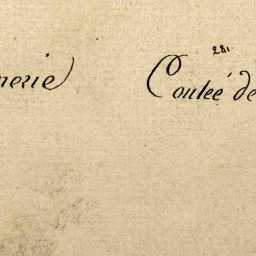 281.
nerie) Coulée de